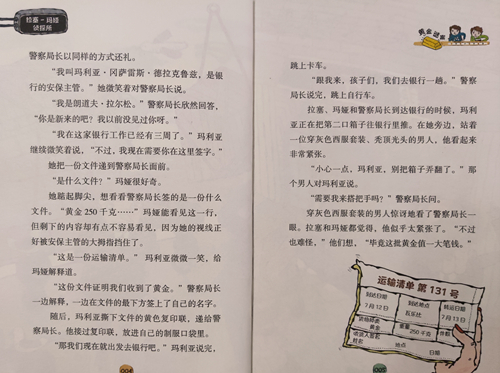 拉塞-玛娅
侦探所
警察局长以同样的方式还礼。
“我叫玛利亚·冈萨雷斯·德拉克鲁兹，是银
行的安保主管。”她微笑着对警察局长说。
“我是朗道夫·拉尔松。”警察局长欣然回答，
“你是新来的吧？我以前没见过你呀。”
“我在这家银行工作已经有三周了。”玛利亚
继续微笑着说，“不过，我现在需要你在这里签字。”
她把一份文件递到警察局长面前。
“是什么文件？”玛娅很好奇。
她踮起脚尖，想看看警察局长签的是一份什么
文件。“黄金250千克……”玛娅能看见这一行，
但剩下的内容却有点不容易看见，因为她的视线正
好被安保主管的大拇指挡住了。
“这是一份运输清单。”玛利亚微微一笑，给
玛娅解释道。
“这份文件证明我们收到了黄金。”警察局长
一边解释，一边在文件的最下方签上了自己的名字。
随后，玛利亚撕下文件的黄色复印联，递给警
察局长。他接过复印联，放进自己的制服口袋里。
“那我们现在就出发去银行吧。”玛利亚说完，
004
黄金谜案
跳上卡车。
“跟我来，孩子们，我们去银行一趟。”警察
局长说完，跳上自行车。
拉塞、玛娅和警察局长到达银行的时候，玛利
亚正在把第二口箱子往银行里推。在她旁边，站着
一位穿灰色西服套装、秃顶光头的男人，他看起来
非常紧张。
“小心一点，玛利亚，别把箱子弄翻了。”那
个男人对玛利亚说。
“需要我来搭把手吗？”警察局长问。
穿灰色西服套装的男人惊讶地看了警察局长一
眼。拉塞和玛娅都觉得，他似乎太紧张了。“不过
也难怪，”他们想，“毕竟这批黄金值一大笔钱。”
运输清单 第131号
到站日期
7月12日
到站地点
瓦乐比
转运日期
7月13日
黄金
重量
250千克
姓名
地点
日期
005